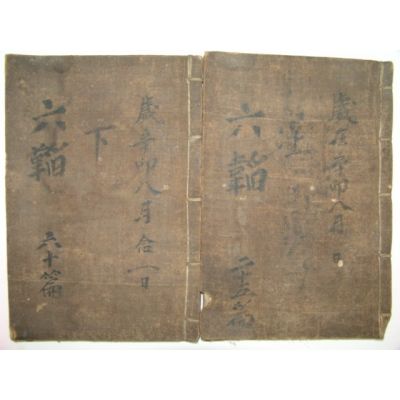 歲在辛卯八月 日
六韜
二十五篇
歲辛卯八月合一日
下
六韜
六十篇